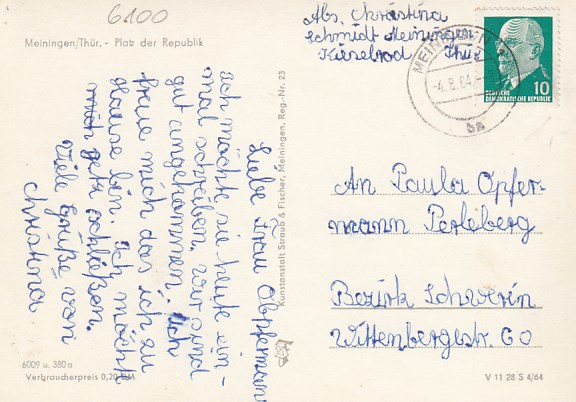 6100
Meiningen/Thür. - Platz der Republik
Abs. Christina
Schmidt Meiningen
Thür
MEININGEN
-4.8.64.
ba
10
DEUTSCHE
DEMOKRATISCHE REPUBLIK
Liebe Frau Obpferman
Ich möchte sie heute ein-
mal schreiben. Wir sind
gut angekommen. Ich
freue mich das ich zu
Hause bin. Ich möchte
mich jetz schließen.
Viele Grüße von
Christina
Kunstanstalt Straub & Fischer, Meiningen, Reg.-Nr. 23
An Paula Opfer-
mann Perleberg
Bezirk Schwerin
Wittenbergestr. 60
6009 u. 380a
Verbraucherpreis 0,20 DM
V 11 28 S 4/64